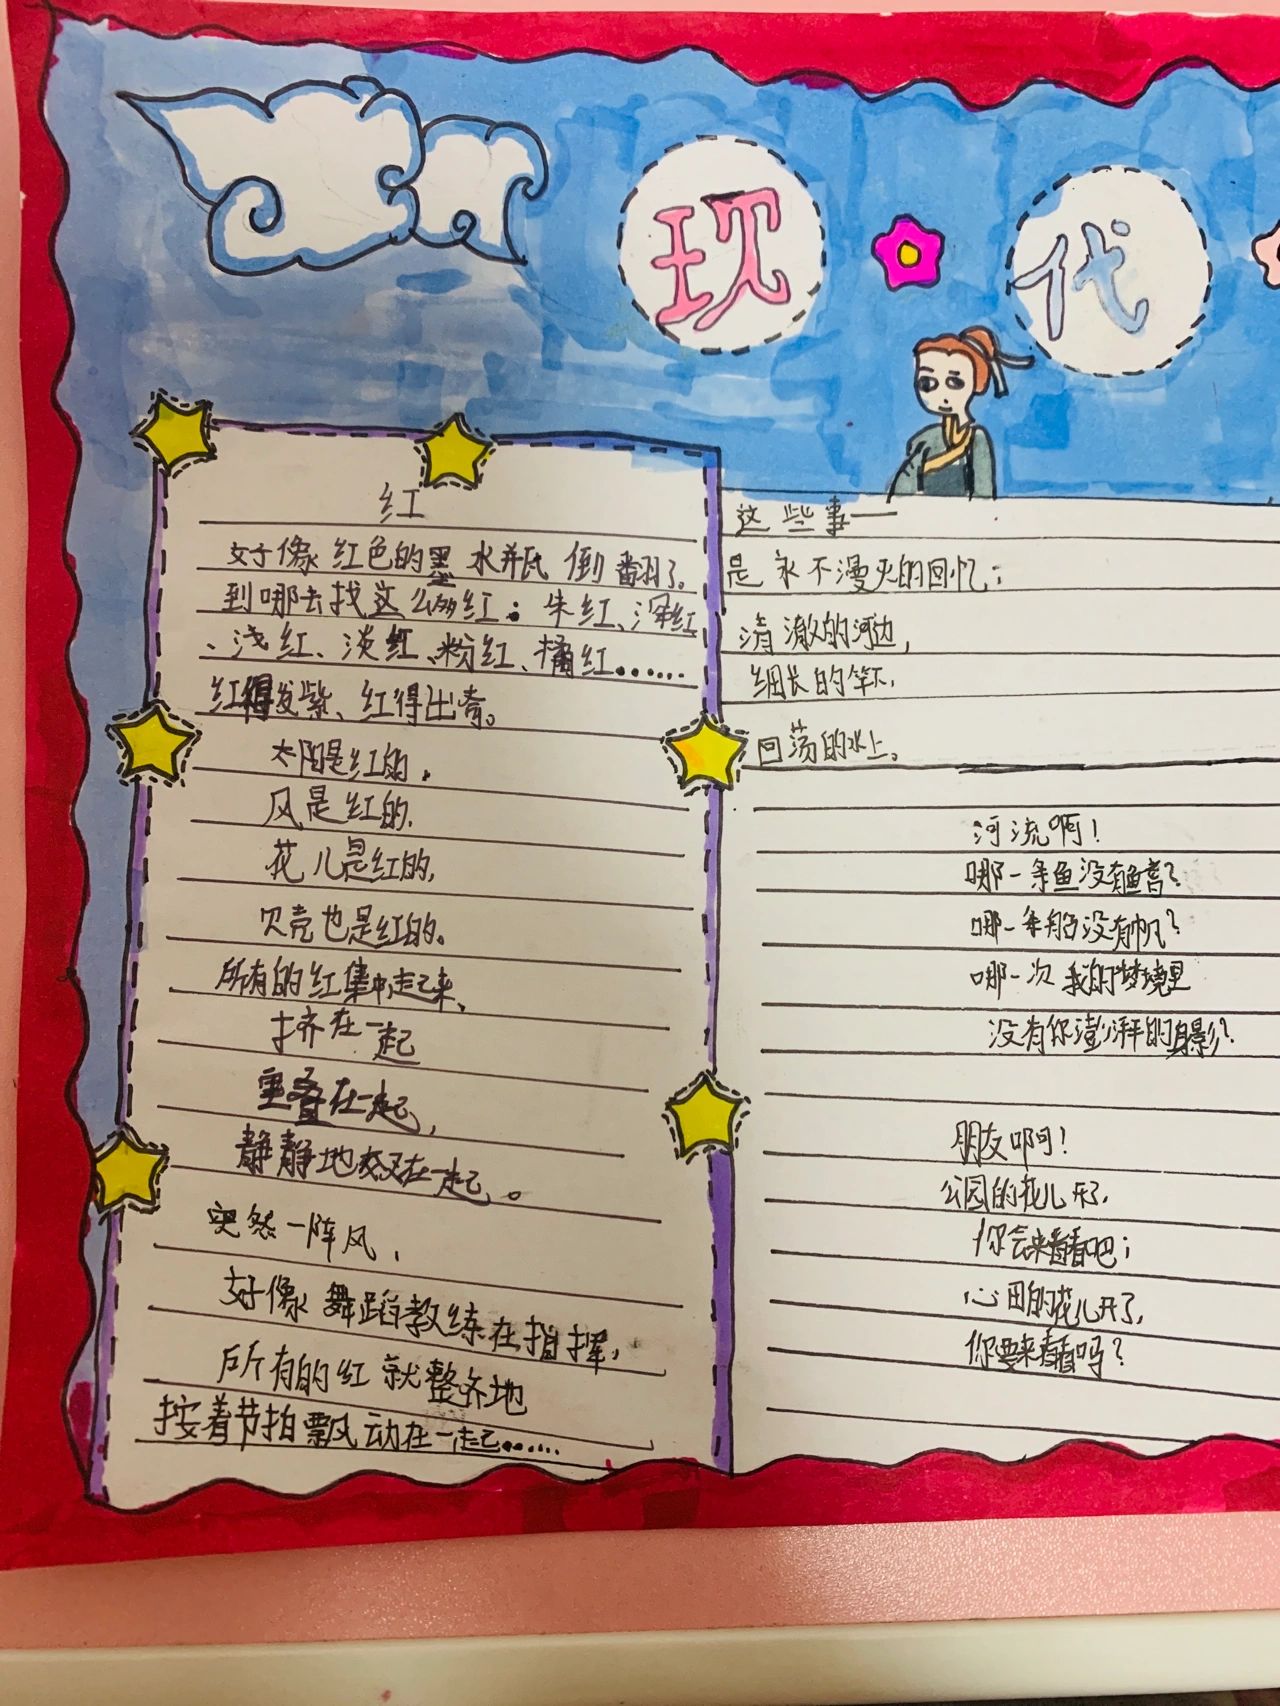 现代
红
好像红色的墨水并瓦倒翻了。
到哪去找这么多红：朱红、深红
、浅红、淡红、粉红、橘红……
红得发紫、红得出奇。
太阳是红的，
风是红的，
花儿是红的，
贝壳也是红的。
所有的红集中起来、
挤在一起
重叠在一起，
静静地交叉在一起。
突然一阵风，
好像舞蹈教练在指挥，
所有的红就整齐地
按着节拍飘动在一起……
这些事——
是永不漫灭的回忆；
清澈的河边，
细长的竿下，
回荡的水上。
河流啊！
哪一条鱼没有鱼音？
哪一条船没有帆？
哪一次我的梦境里
没有你澎湃的身影？
朋友啊！
公园的花儿开了，
你会来看看吧；
心田的花儿开了，
你要来看看吗？